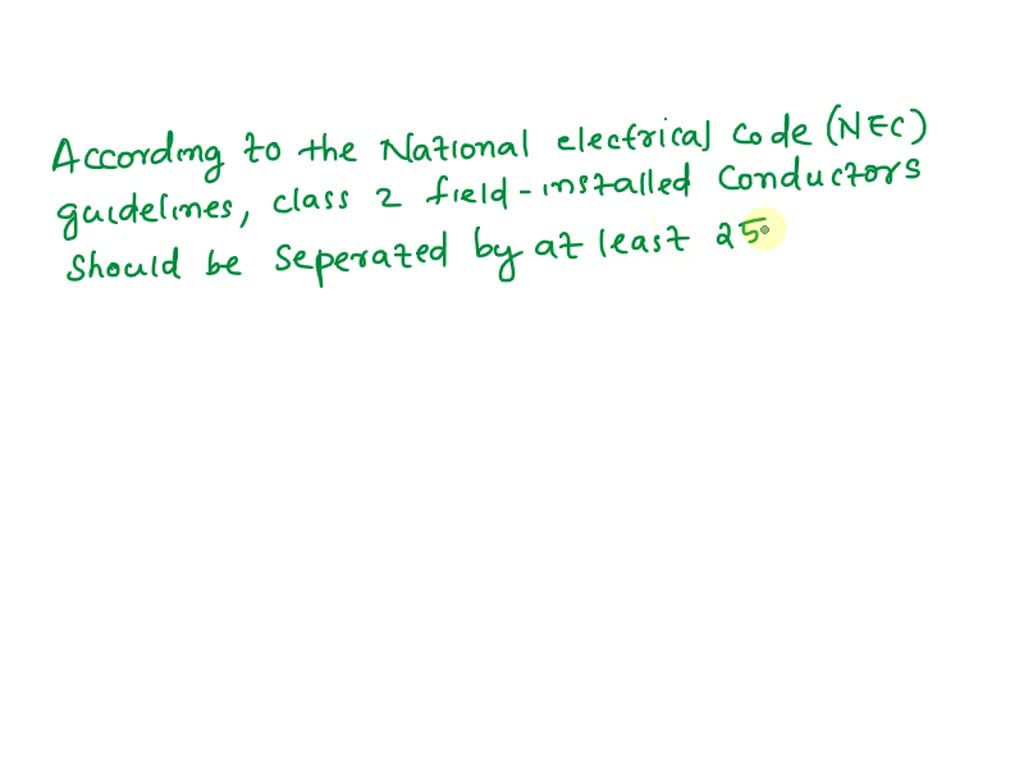 According to the National electrical code (NEC)
guidelines, class 2 field-installed conductors
should be seperated by at least 25